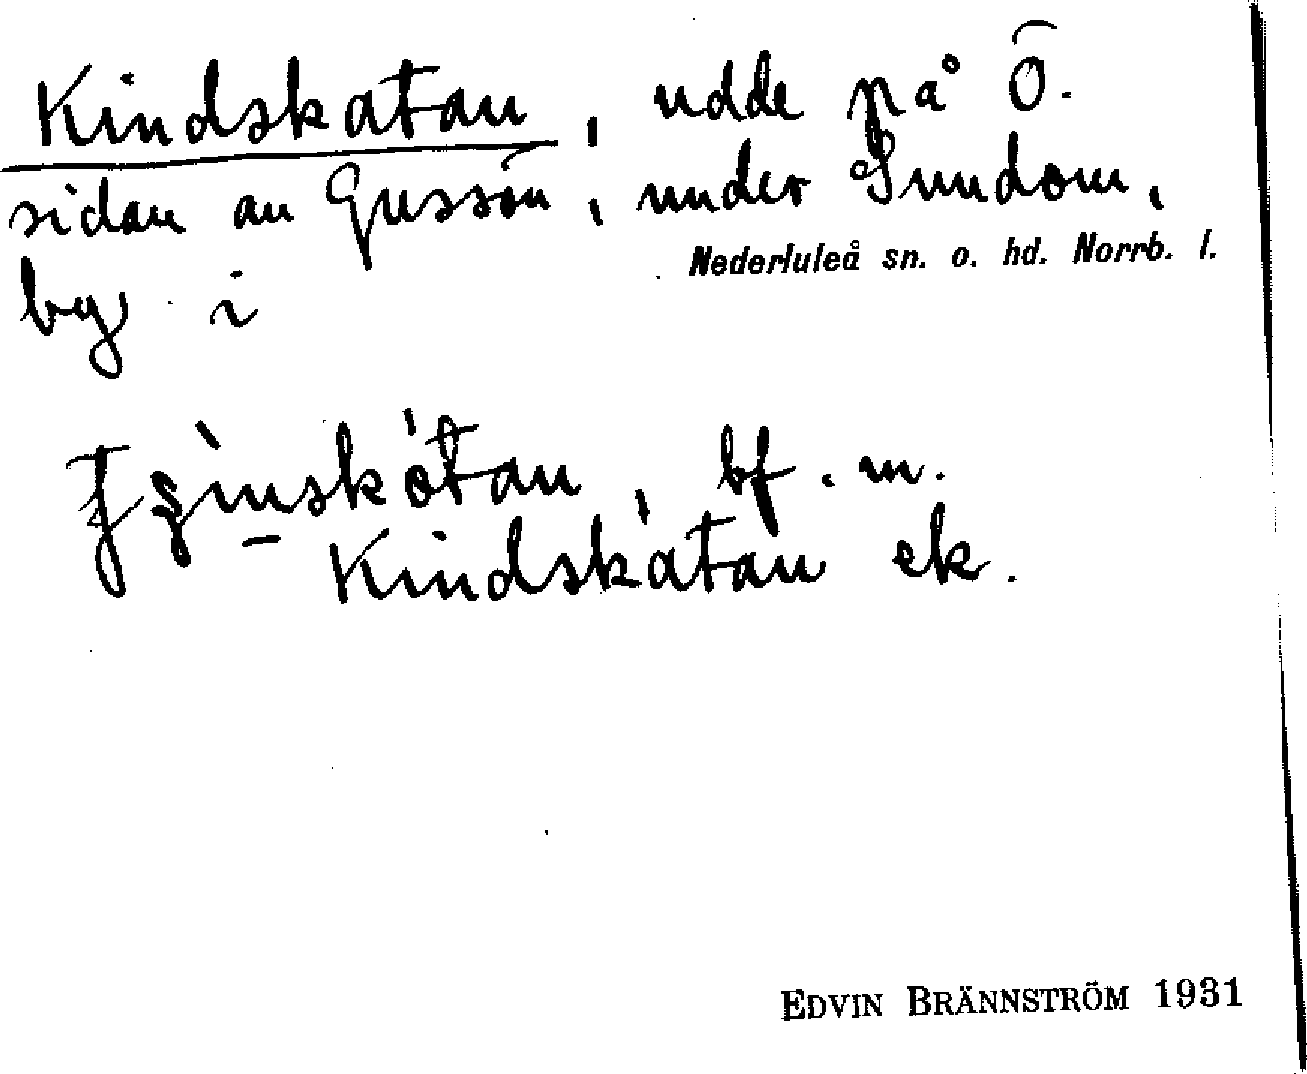 Kindskatan, udde på Ö.
sidan av Gussön, under Sundom,
Nederluleå sn. o. hd. Norrb. l.
by i
bf. m.
Kindskatan ek.
EDVIN BRÄNNSTRÖM 1931